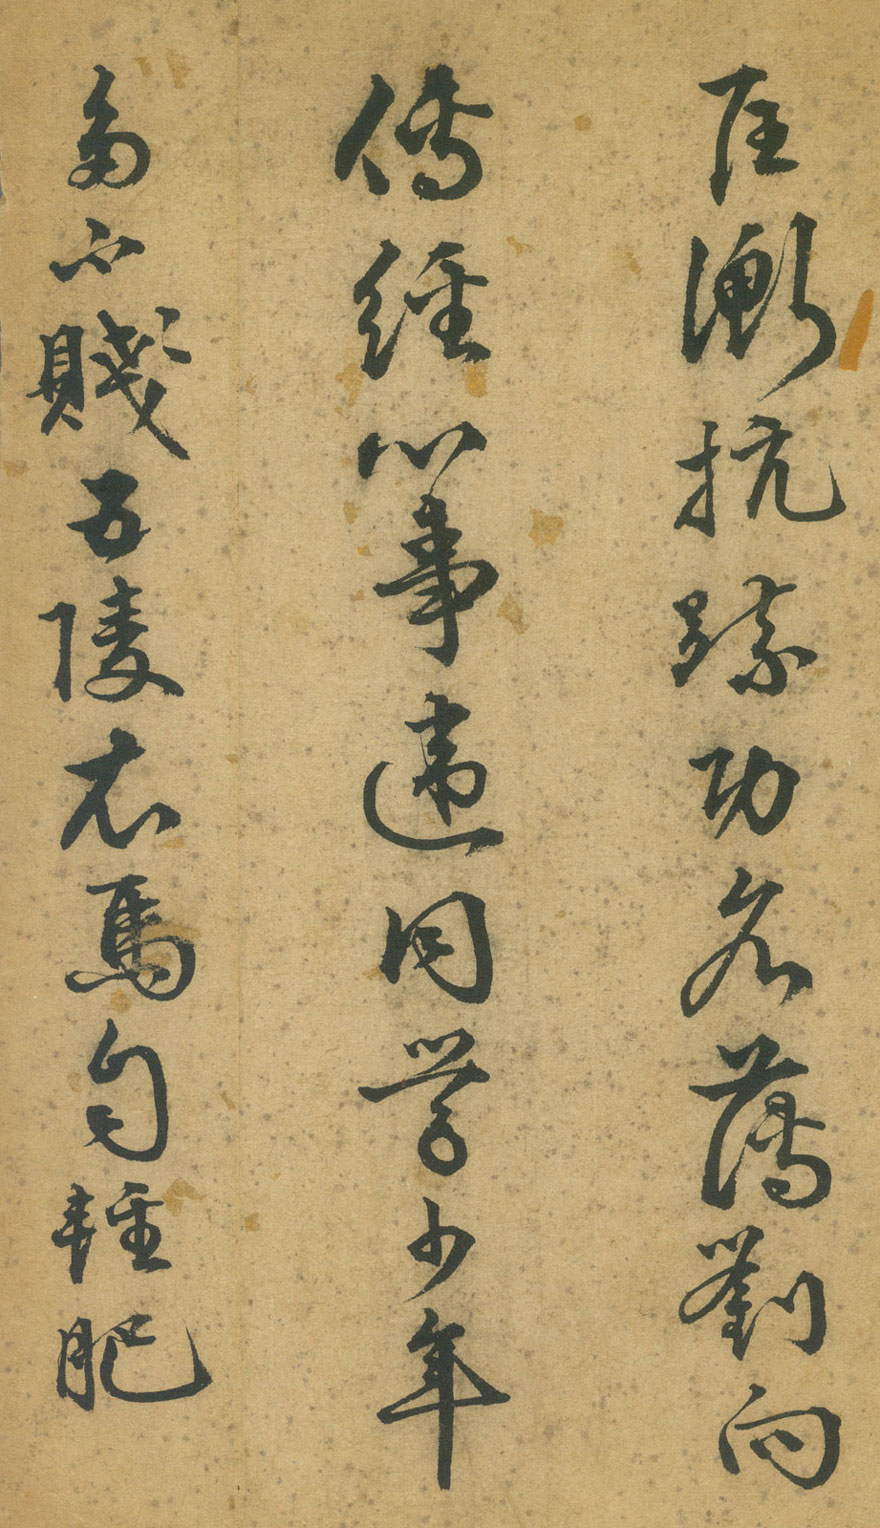 匡衡抗疏功名薄劉向
傳經心事違同学少年
多不賤五陵衣馬自輕肥